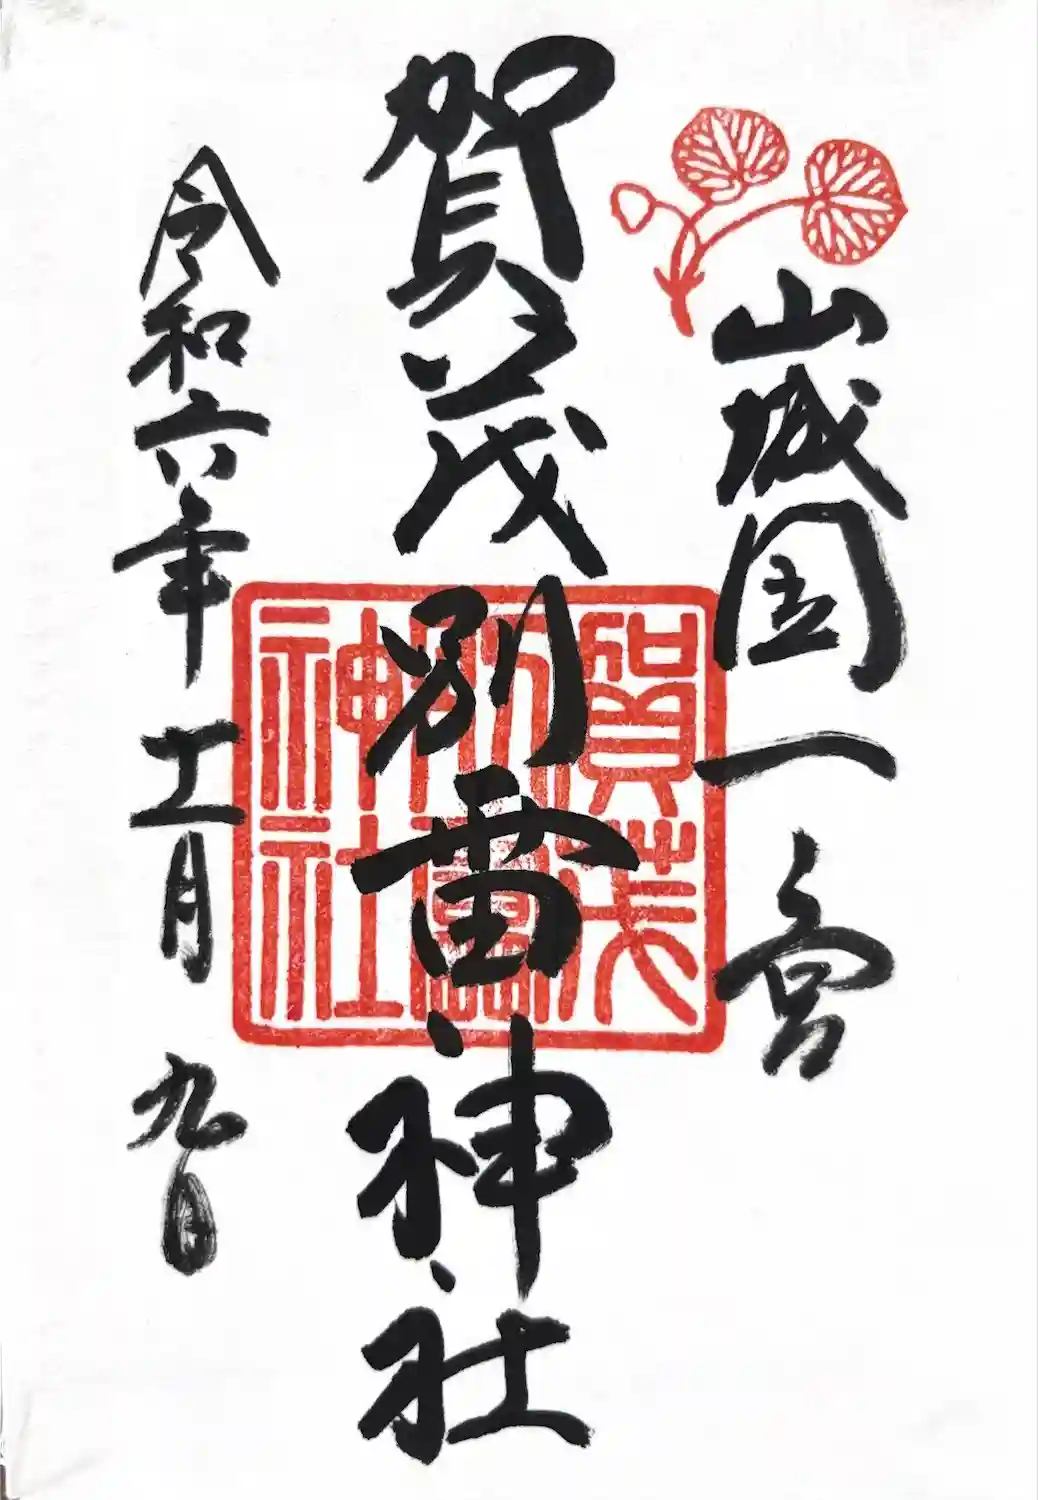 山城国一宮
賀茂別雷神社
令和六年十一月九日
賀茂
別雷
神社